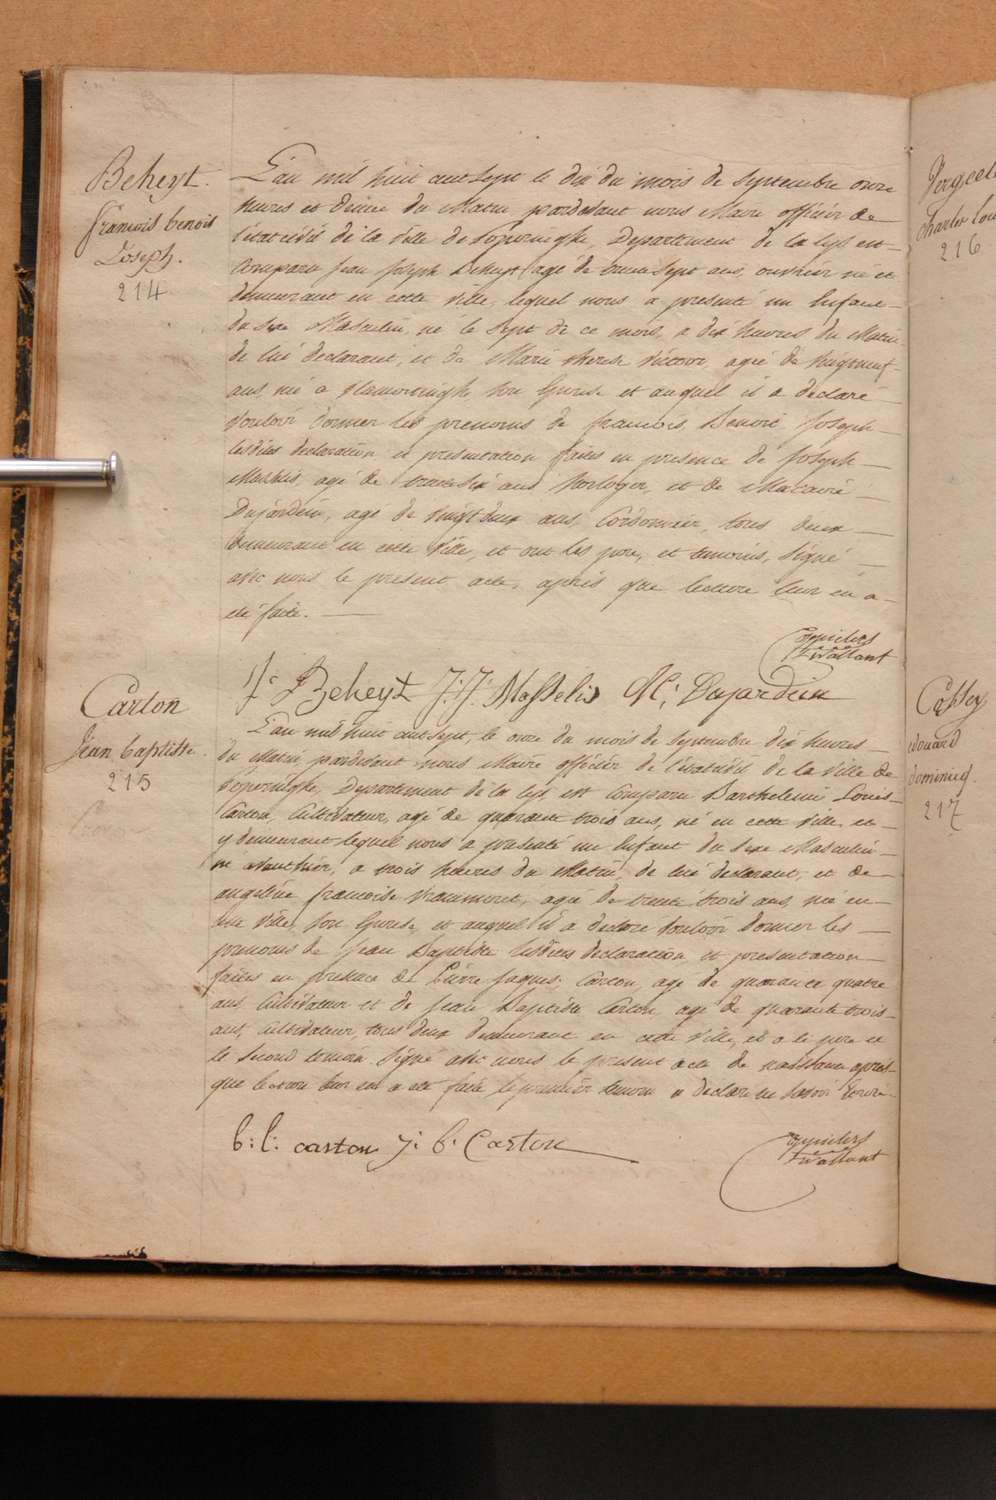 Beheyt.
francois benoit
Joseph.
214
L'an mil huit cent sept le dix du mois de Septembre onze
heures et demie du Matin pardevant nous Maire officier de
l'état civil de la Ville de Poperinghe, Departement de la Lys est
Comparu Jean Joseph Beheyt agé de sept ans, ouvrier né et
demeurant en cette Ville, lequel nous a presenté un Enfant
du Sexe Masculin, né le Sept de ce mois, a dix heures du Matin
de lui declarant, et de Marie therese agée de vingt neuf
ans, née a Vlamertinghe son Epouse et auquel il a declaré
Vouloir donner les prenoms de francois Benoit Joseph
lesdites declaration et presentation faites en presence de Joseph
agé de trente six ans horloger, et de Macaire
Dujardein, agé de vingt deux ans, Cordonnier, tous deux
demeurant en cette Ville, et ont les pere, et temoins, Signé
avec nous le present acte, après que lecture leur en a
eté faite.
J: Beheyt J: J: Masselis M: Dujardein
Carton
Jean baptiste
215
L'an mil huit cent sept, le onze du mois de Septembre dix heures
du Matin, pardevant nous Maire officier de l'état civil de la Ville de
Poperinghe, Departement de la Lys, est Comparu Barthelemi Louis
Carton, Cultivateur, agé de quarante trois ans, né en cette Ville et
y demeurant lequel nous a presenté un Enfant du Sexe Masculin
né avant hier, a trois heures du Matin, de lui declarant, et de
angeline francoise agée de trente trois ans, née en
Ville, son Epouse, et auquel il a declaré Vouloir donner les
prenoms de Jean Baptiste lesdites declaration et presentation
faites en presence de Pierre Jaques Carton, agé de quarante quatre
ans, Cultivateur et de Jean Baptiste Carton, agé de quarante trois
ans, Cultivateur, tous deux demeurant en cette Ville, et a le pere et
le Second temoin Signé avec nous le present acte de naissance après
que lecture leur en a eté faite le premier temoin a declaré ne savoir Ecrire
b: l: carton J: b: Carton
charles lou
216
edouard
dominicq
217